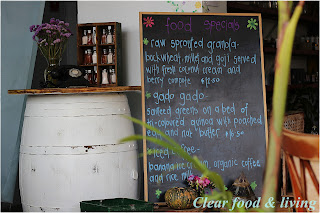 food specials
raw sprouted granola-
buckwheat, millet and goji served
with fresh coconut cream and
berry compote
gado gado-
on a bed of
tri-coloured quinoa with poached
egg and nut "butter"
free-
banana ice cream, organic coffee
and rice milk
Clear food & living